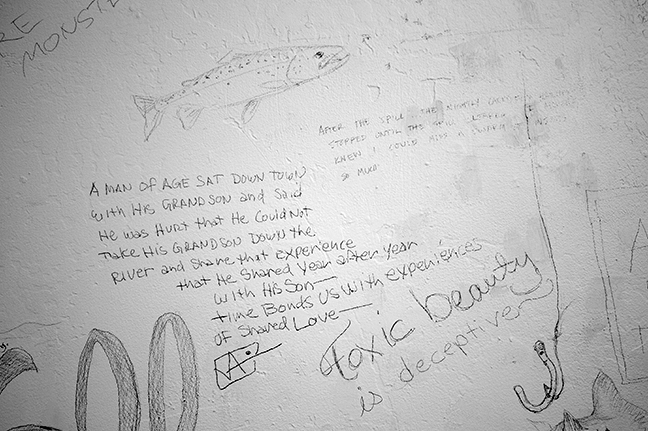 MONST
AFTER THE SPILL THE NIGHTLY
STOPPED UNTIL THE SPILL
KNEW I COULD MISS A
SO MUCH
A MAN OF AGE SAT DOWN TOWN
with His GRANDSON and Said
He was Hurt that He Could Not
Take His GRANDSON DOWN the
River and Share that Experience
that He Shared Year after Year
with His Son—
time Bonds Us with experiences
of Shared Love—
A.
Toxic beauty
is deceptive